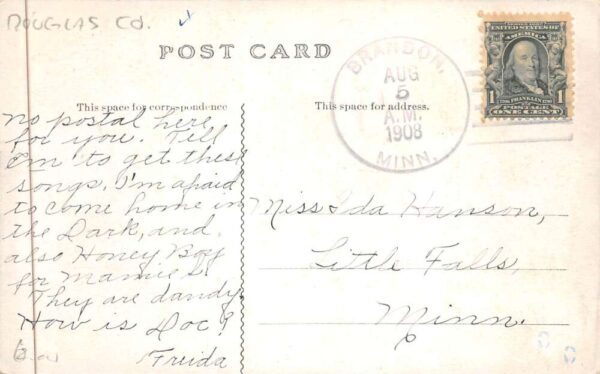 DOUGLAS CO.
POST CARD
This space for correspondence
This space for address.
BRANDON.
AUG
5
A.M.
1908
MINN.
UNITED STATES OF AMERICA
FRANKLIN
POSTAGE
1 ONE CENT 1
no postal here
for you. Tell
Em to get these
songs. I'm afraid
to come home in
the Dark, and
also Honey Boy
for Mamie L.
They are dandy.
How is Doc?
Freida
Miss Ida Hanson,
Little Falls,
Minn.